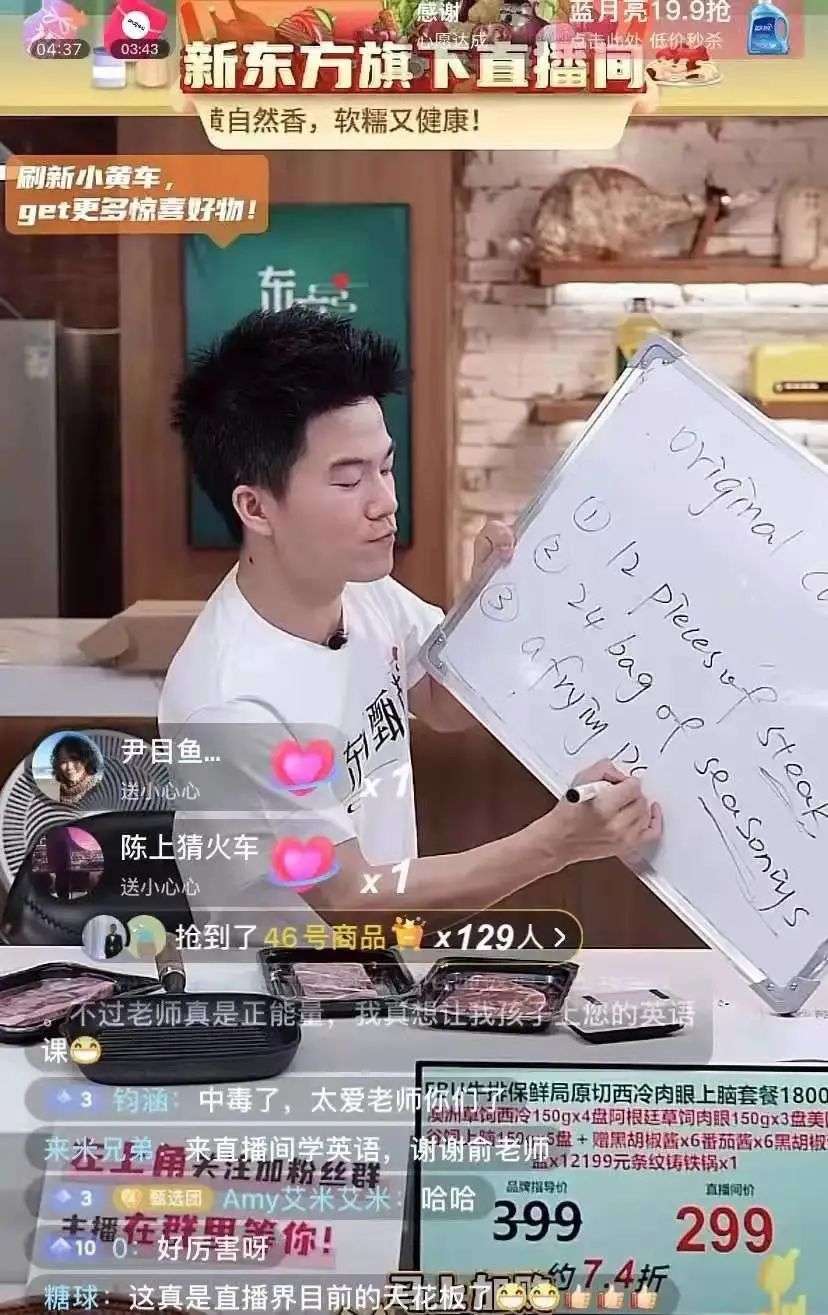 04:37
03:43
感谢
心愿达成
蓝月亮19.9抢
点击此处 低价秒杀
新东方旗下直播间
黄自然香，软糯又健康！
刷新小黄车，
get更多惊喜好物！
东
original
① 12 pieces of steak
② 24 bag of seasonings
③ a frying
甄
尹目鱼...
送小心心
x1
陈上猜火车
送小心心
x1
抢到了 46号商品 x129人 >
。不过老师真是正能量，我真想让我孩子上您的英语
课😁
3 钧涵：中毒了，太爱老师你们了
来米兄弟：来直播间学英语，谢谢俞老师
左上角关注加粉丝群
3 甄选团 Amy艾米艾米：哈哈
主播在群里等你！
10 0：好厉害呀
糖球：这真是直播界目前的天花板了😁😁👍👍👍
牛排保鲜局原切西冷肉眼上脑套餐1800
澳洲草饲西冷150gx4盘阿根廷草饲肉眼150gx3盘美国
谷饲上脑150gx5盘 + 赠黑胡椒酱x6番茄酱x6黑胡椒
盐x12199元条纹铸铁锅x1
品牌指导价
399
直播间价
299
约7.4折